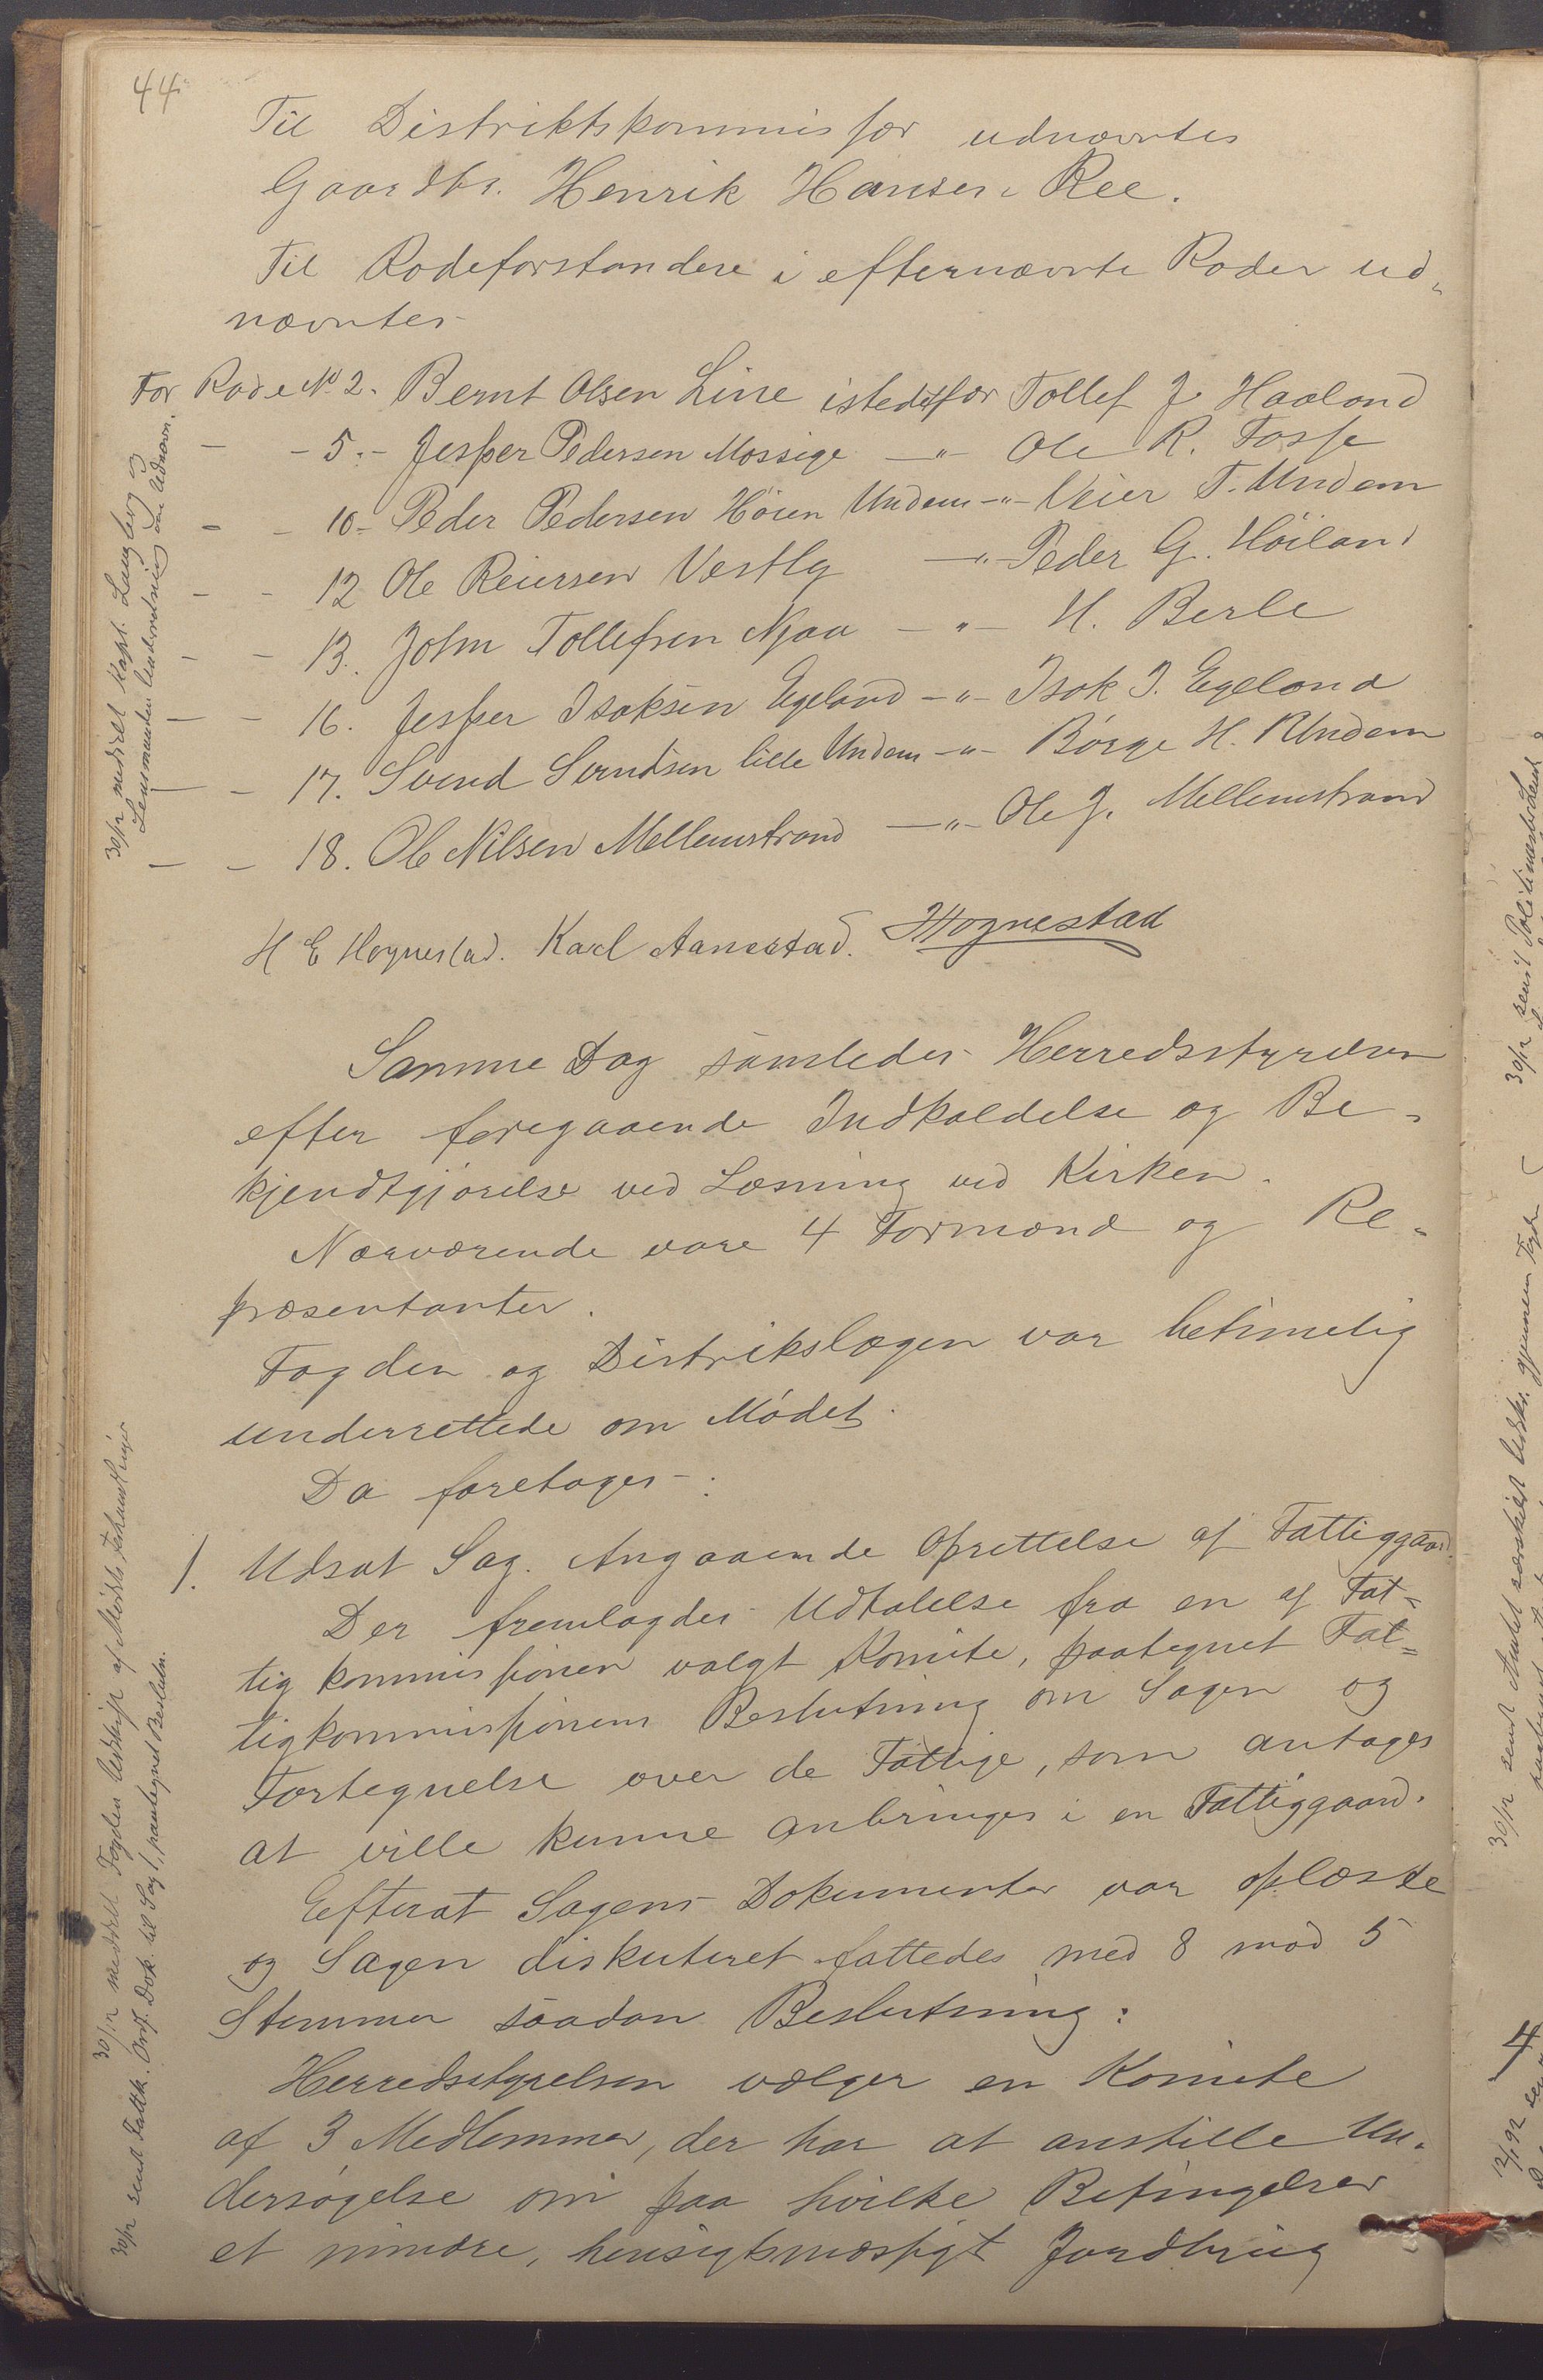 44
Til Distriktskommissær udnævntes
Gaardbr. Henrik Hansen Ree.
Til Rodeforstandere i efternævnte Roder ud„
nævntes
For Rode No 2. Bernt Olsen Line istedetfor Tollef J. Haaland
— - 5. - Jesper Pedersen Mossige —"— Ole R. Fosse
- - 10 - Peder Pedersen Höien Undem —"— Veier T. Undem
- - 12 Ole Reiersen Vestly —"— Peder G. Höiland
- - 13. John Tollefsen Njaa —"— H. Berle
- - 16. Jesper Isaksen Egeland —"— Isak J. Egeland
- - 17. Svend Svendsen lille Undem —"— Börge H. Undem
- - 18. Ole Nilsen Mellemstrand —"— Ole J. Mellemstrand
30/12 meddelt Kapt. Langberg og
Lensmanden Underretning om Udnævn.
H E Hognestad. Karl Aanestad. Hognestad
Samme Dag samledes Herredsstyrelsen
efter foregaaende Indkaldelse og Be„
kjendtgjörelse ved Læsning ved Kirken.
Nærværende vare 4 Formænd og Re„
præsentanter.
Fogden og Distrikslægen var betimelig
underrettede om Mödet.
Da foretages:
1. Udsat Sag. Angaaende Oprettelse af Fattiggaard.
Der fremlagdes Udtalelse fra en af Fat„
tigkommissionen valgt Komite, paategnet Fat„
tigkommissionens Beslutning om Sagen og
Fortegnelse over de Fattige, som antages
at ville kunne anbringes i en Fattiggaard.
Efterat Sagens Dokumenter var oplæste
og Sagen diskuteret fattedes med 8 mod 5
Stemmer saadan Beslutning:
Herredsstyrelsen vælger en Komite
af 3 Medlemmer, der har at anstille Un„
dersögelse om paa hvilke Betingelser
et mindre, hensigtsmæssigt Jordbrug
30/12 meddelt Fogden Udskrift af Mödets Forhandlinger
30/12 sendt Fattk. Ordf. Dok. til Sag 1, paategnet Beslutn.